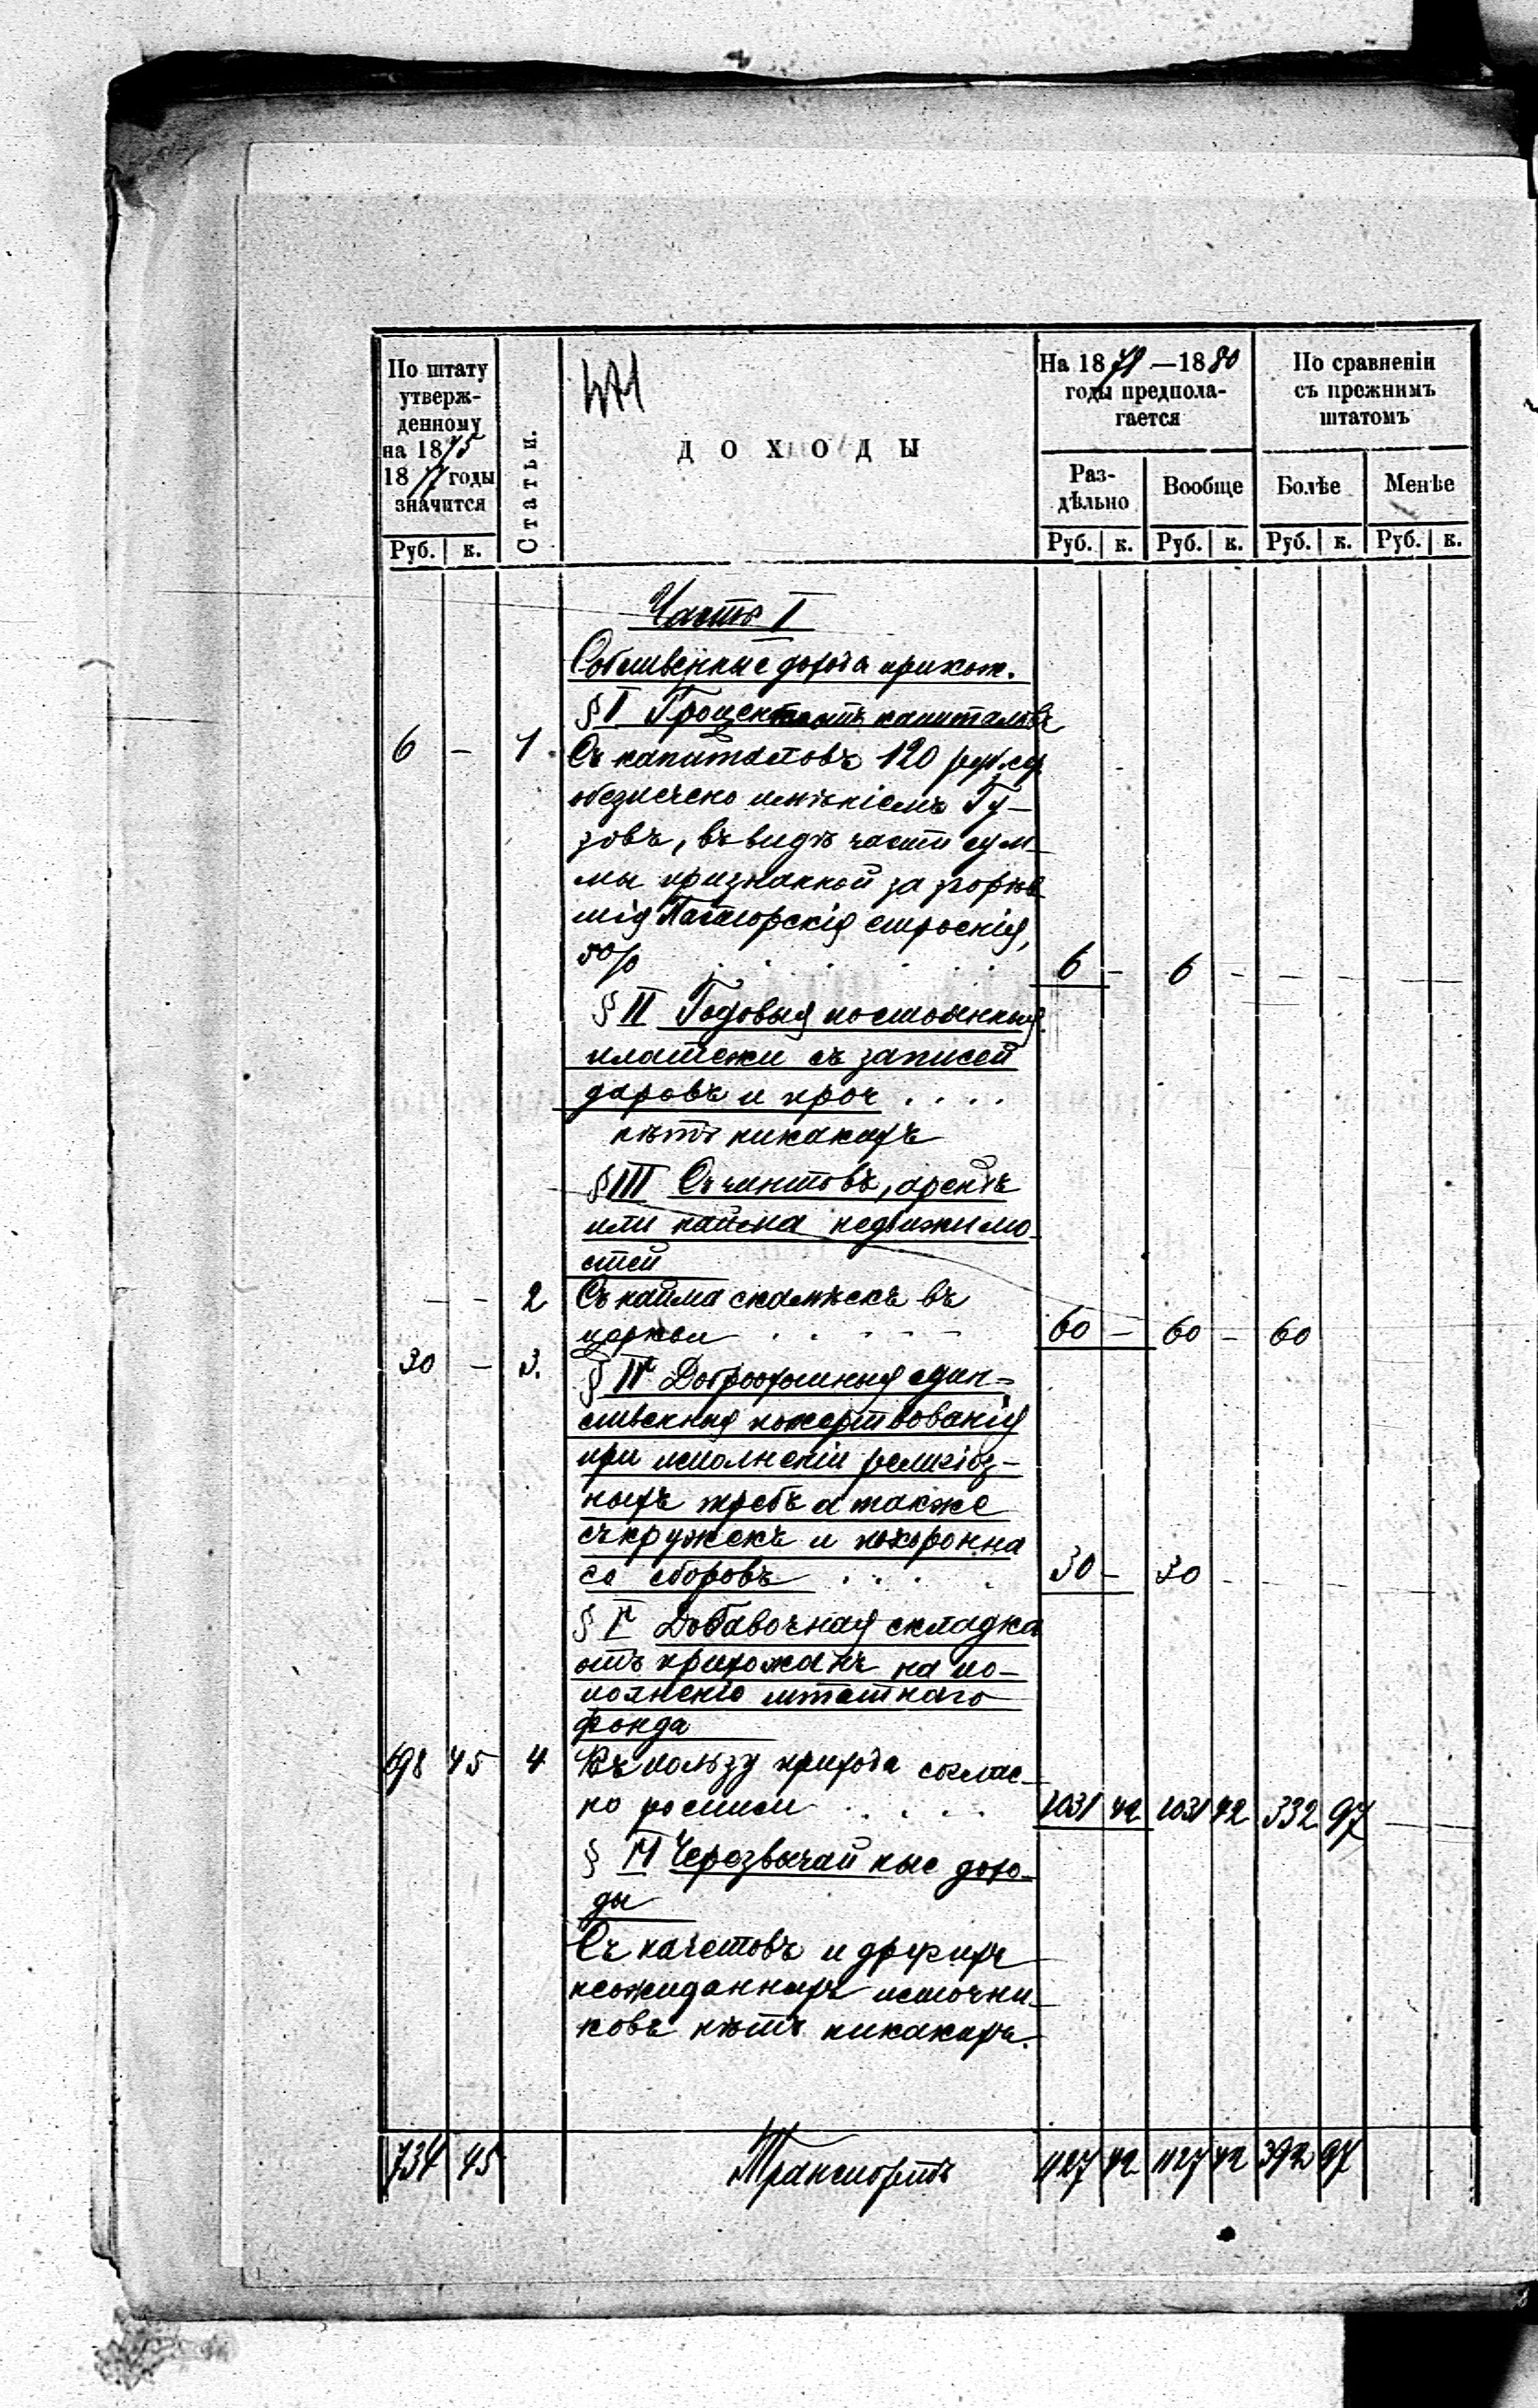 По штату
утверж-
денному
на 1875
1877 годы
значится
Руб. к.
Статьи.
471
ДОХОДЫ
На 1878—1880
годы предпола-
гается
Раз-
дѣльно
Вообще
Руб. к. Руб. к.
По сравненіи
съ прежнимъ
штатомъ
Болѣе Менѣе
Руб. к. Руб. к.
Часть I
Собственные дохода приход.
§ I Процентъ отъ капиталовъ
6 — 1. Съ капиталовъ 120 руб. сер.
обезпечено имѣніемъ Гу-
зовъ, въ видѣ части сум-
мы признанной за згорѣв
шія строенія,
5% . . . . . . 6 — 6 — — — — —
§ II Годовыя постоянныя
платежи съ записей
даровъ и проч . . . .
нѣтъ никакихъ
§ III Съ чиншовъ, арендъ
или найма недвижимо
стей
— — 2 Съ найма скамѣекъ въ
церкви . . . . . 60 — 60 — 60
30 — 3. § IV Доброхотныя един-
ственныя пожертвованія
при исполненіи религіоз-
ныхъ требъ а также
съ кружекъ и похоронна
го сборовъ . . . . 30 — 30 — — — — —
§ V Добавочная складка
отъ прихожанъ на по-
полненіе штатнаго
фонда
698 45 4 Въ пользу прихода соглас-
но росписи . . . . 1031 42 1031 42 332 97 — —
§ VI Черезвычайные дохо-
ды
Съ начетовъ и другихъ
неожиданныхъ источни-
ковъ нѣтъ никакихъ.
734 45 Транспортъ 1127 42 1127 42 392 97